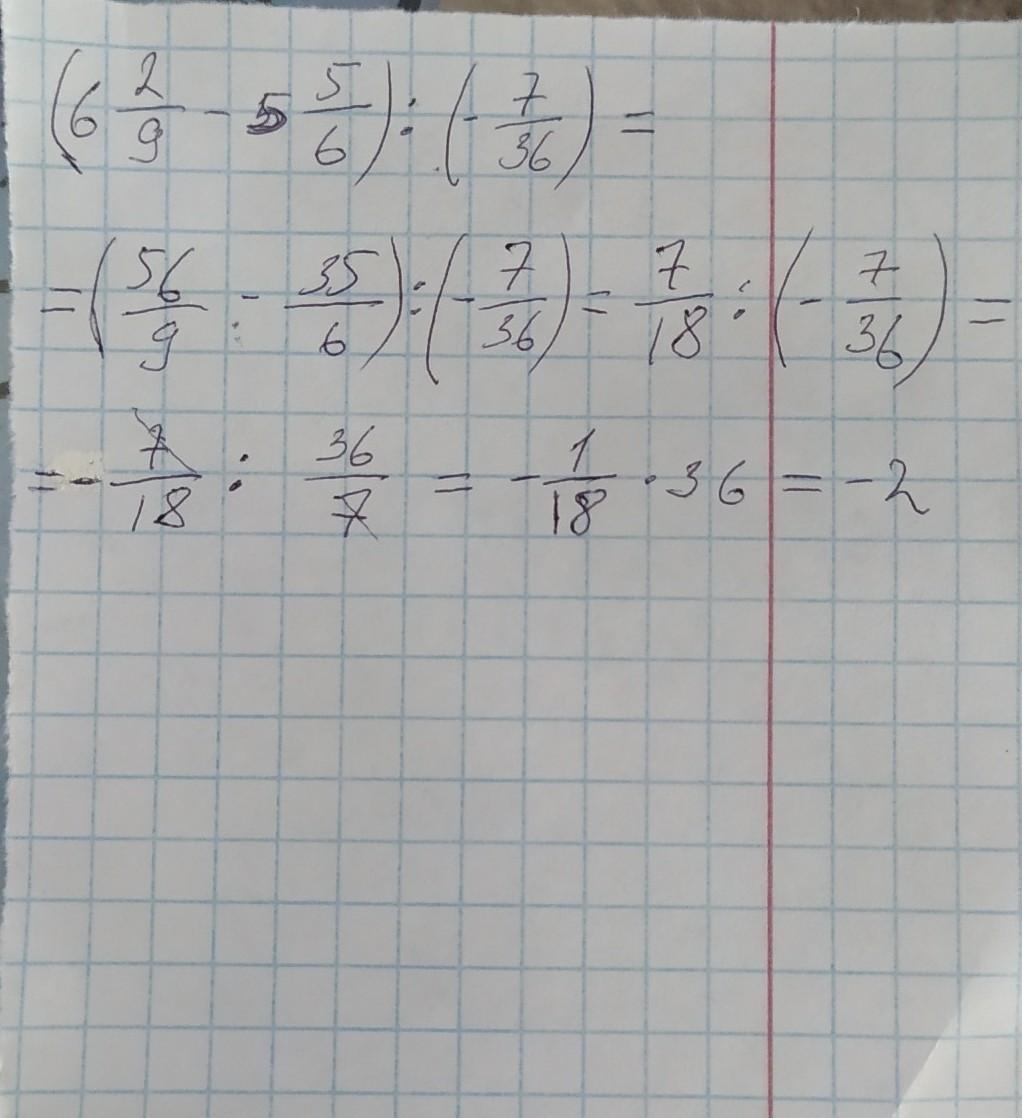 (6 2/9 - 5 5/6) : (- 7/36) =
= (56/9 - 35/6) : (- 7/36) = 7/18 : (- 7/36) =
= - 7/18 : 36/7 = - 1/18 · 36 = -2